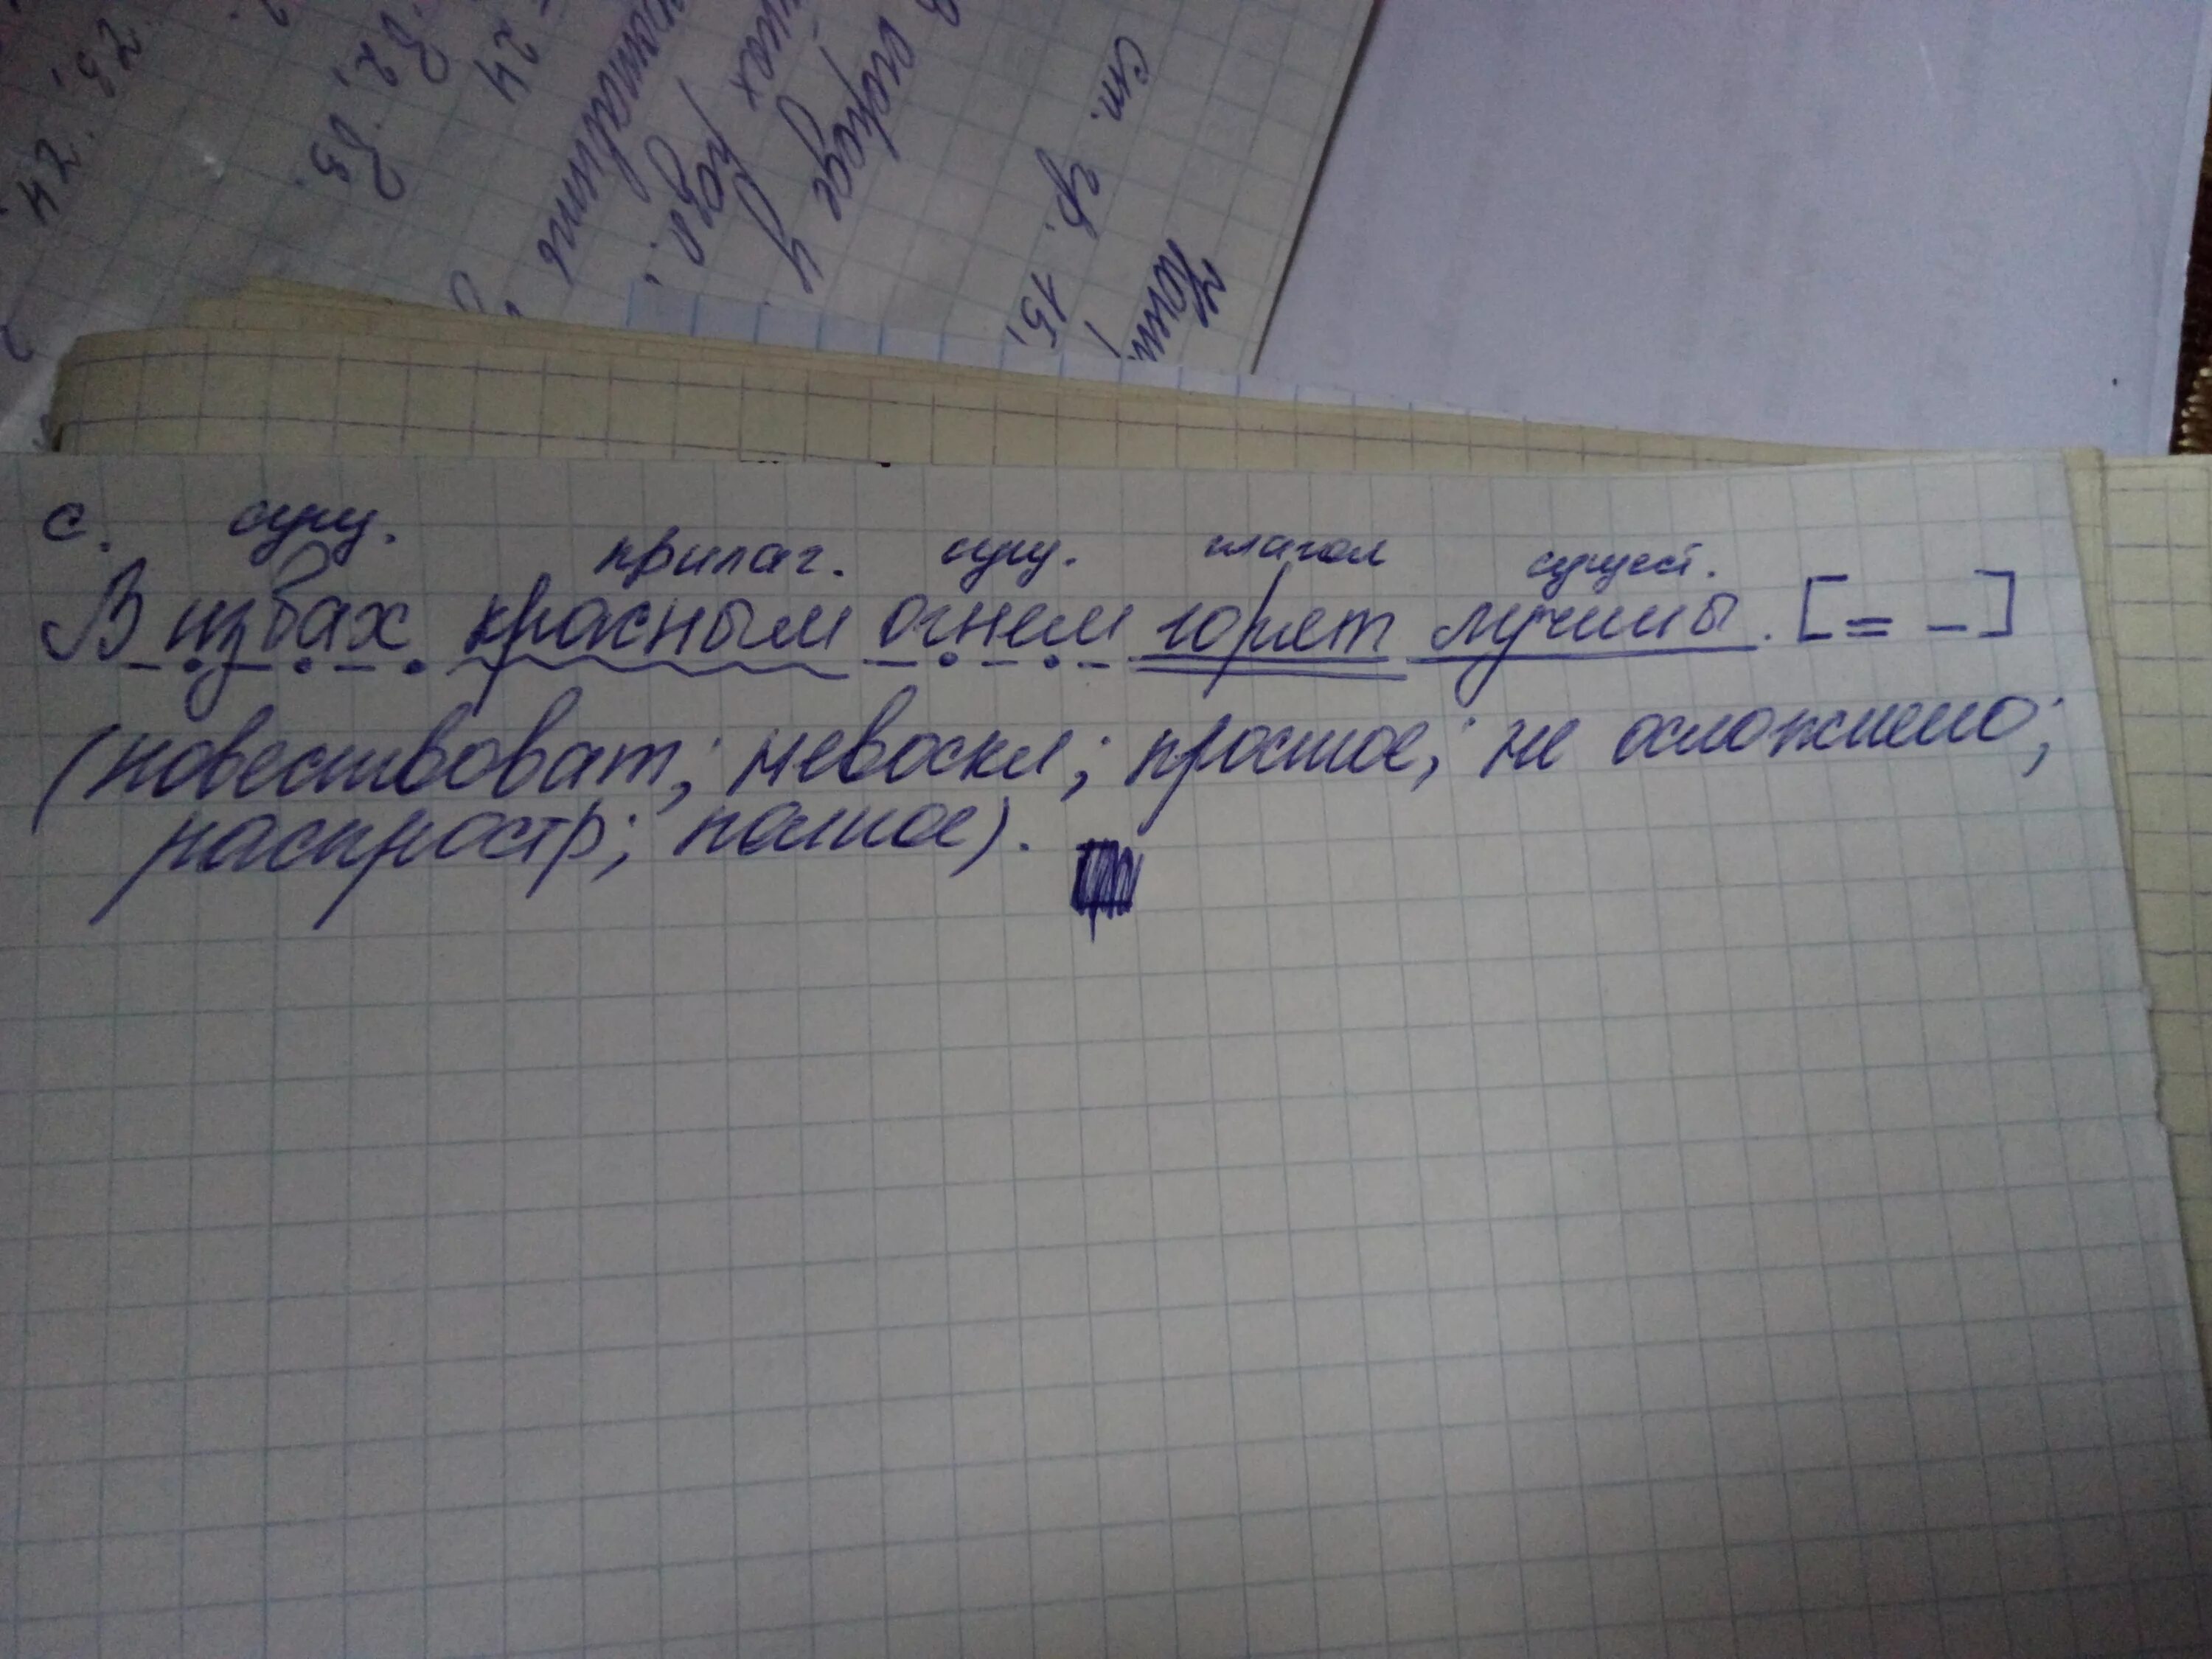 ст.
гр. 15,
24
82,
83.
42. 82
с. сущ. прилаг. сущ. глагол сущест.
В избах красным огнем горят лучины. [= -]
(повествоват; невоскл; простое; не осложнено;
распростр; полное).